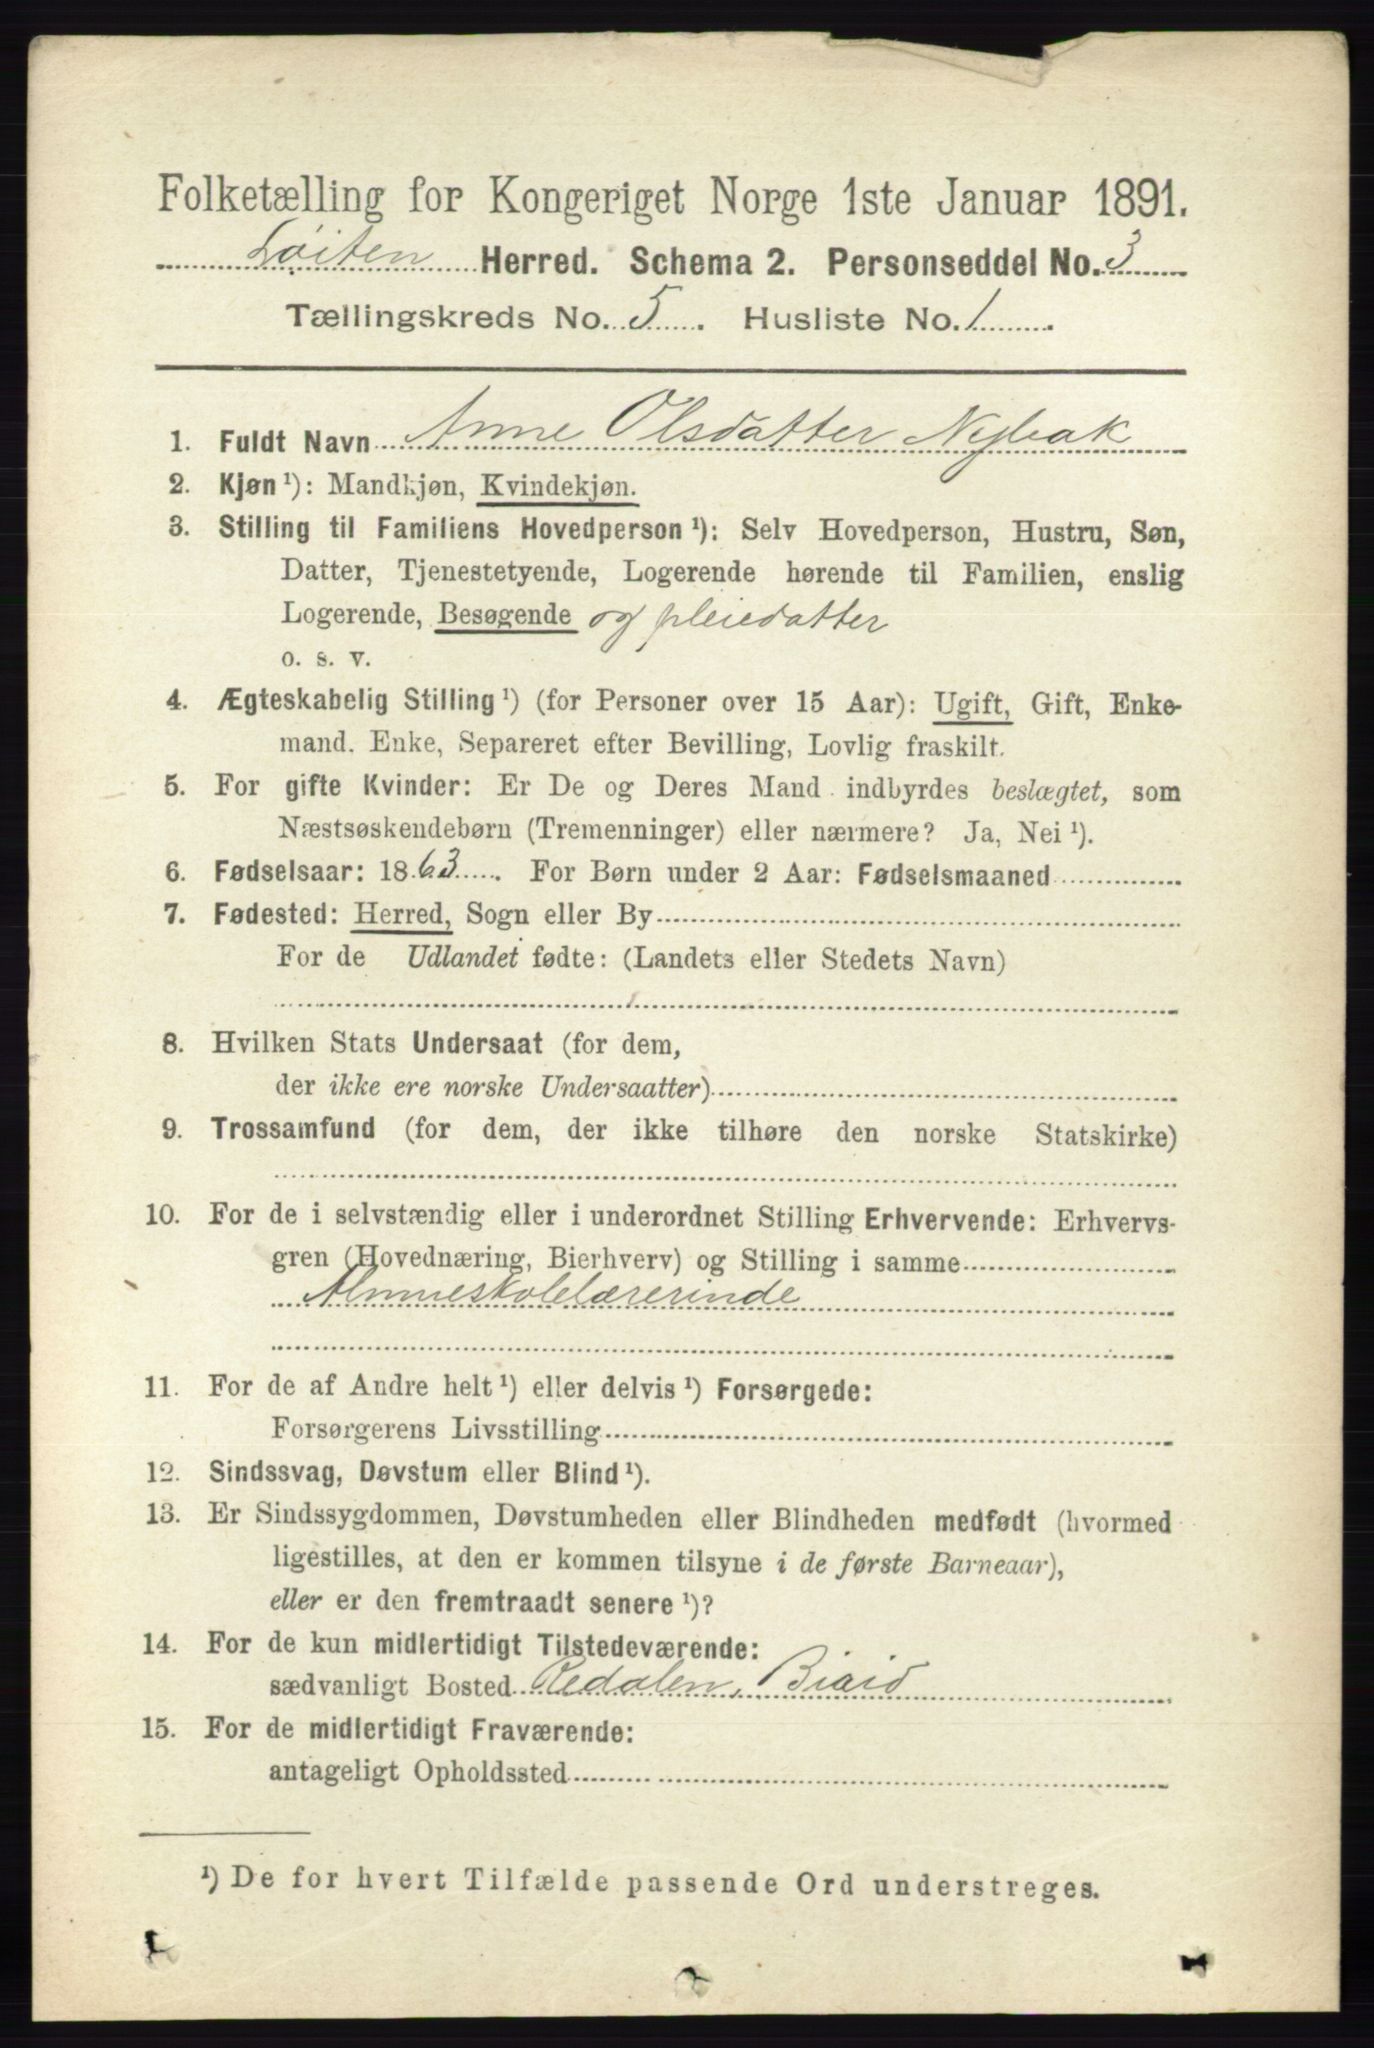 Folketælling for Kongeriget Norge 1ste Januar 1891.
Løiten Herred. Schema 2. Personseddel No. 3
Tællingskreds No. 5. Husliste No. 1.
1. Fuldt Navn Anne Olsdatter Nybak
2. Kjøn ¹): Mandkjøn, Kvindekjøn.
3. Stilling til Familiens Hovedperson ¹): Selv Hovedperson, Hustru, Søn,
Datter, Tjenestetyende, Logerende hørende til Familien, enslig
Logerende, Besøgende og pleiedatter
o. s. v.
4. Ægteskabelig Stilling ¹) (for Personer over 15 Aar): Ugift, Gift, Enke-
mand. Enke, Separeret efter Bevilling, Lovlig fraskilt.
5. For gifte Kvinder: Er De og Deres Mand indbyrdes beslægtet, som
Næstsøskendebørn (Tremenninger) eller nærmere? Ja, Nei ¹).
6. Fødselsaar: 1863. For Børn under 2 Aar: Fødselsmaaned
7. Fødested: Herred, Sogn eller By
For de Udlandet fødte: (Landets eller Stedets Navn)
8. Hvilken Stats Undersaat (for dem,
der ikke ere norske Undersaatter)
9. Trossamfund (for dem, der ikke tilhøre den norske Statskirke)
10. For de i selvstændig eller i underordnet Stilling Erhvervende: Erhvervs-
gren (Hovednæring, Bierhverv) og Stilling i samme
Almueskolelærerinde
11. For de af Andre helt ¹) eller delvis ¹) Forsørgede:
Forsørgerens Livsstilling
12. Sindssvag, Døvstum eller Blind ¹).
13. Er Sindssygdommen, Døvstumheden eller Blindheden medfødt (hvormed
ligestilles, at den er kommen tilsyne i de første Barneaar),
eller er den fremtraadt senere ¹)?
14. For de kun midlertidigt Tilstedeværende:
sædvanligt Bosted Redalen, Birid
15. For de midlertidigt Fraværende:
antageligt Opholdssted
¹) De for hvert Tilfælde passende Ord understreges.